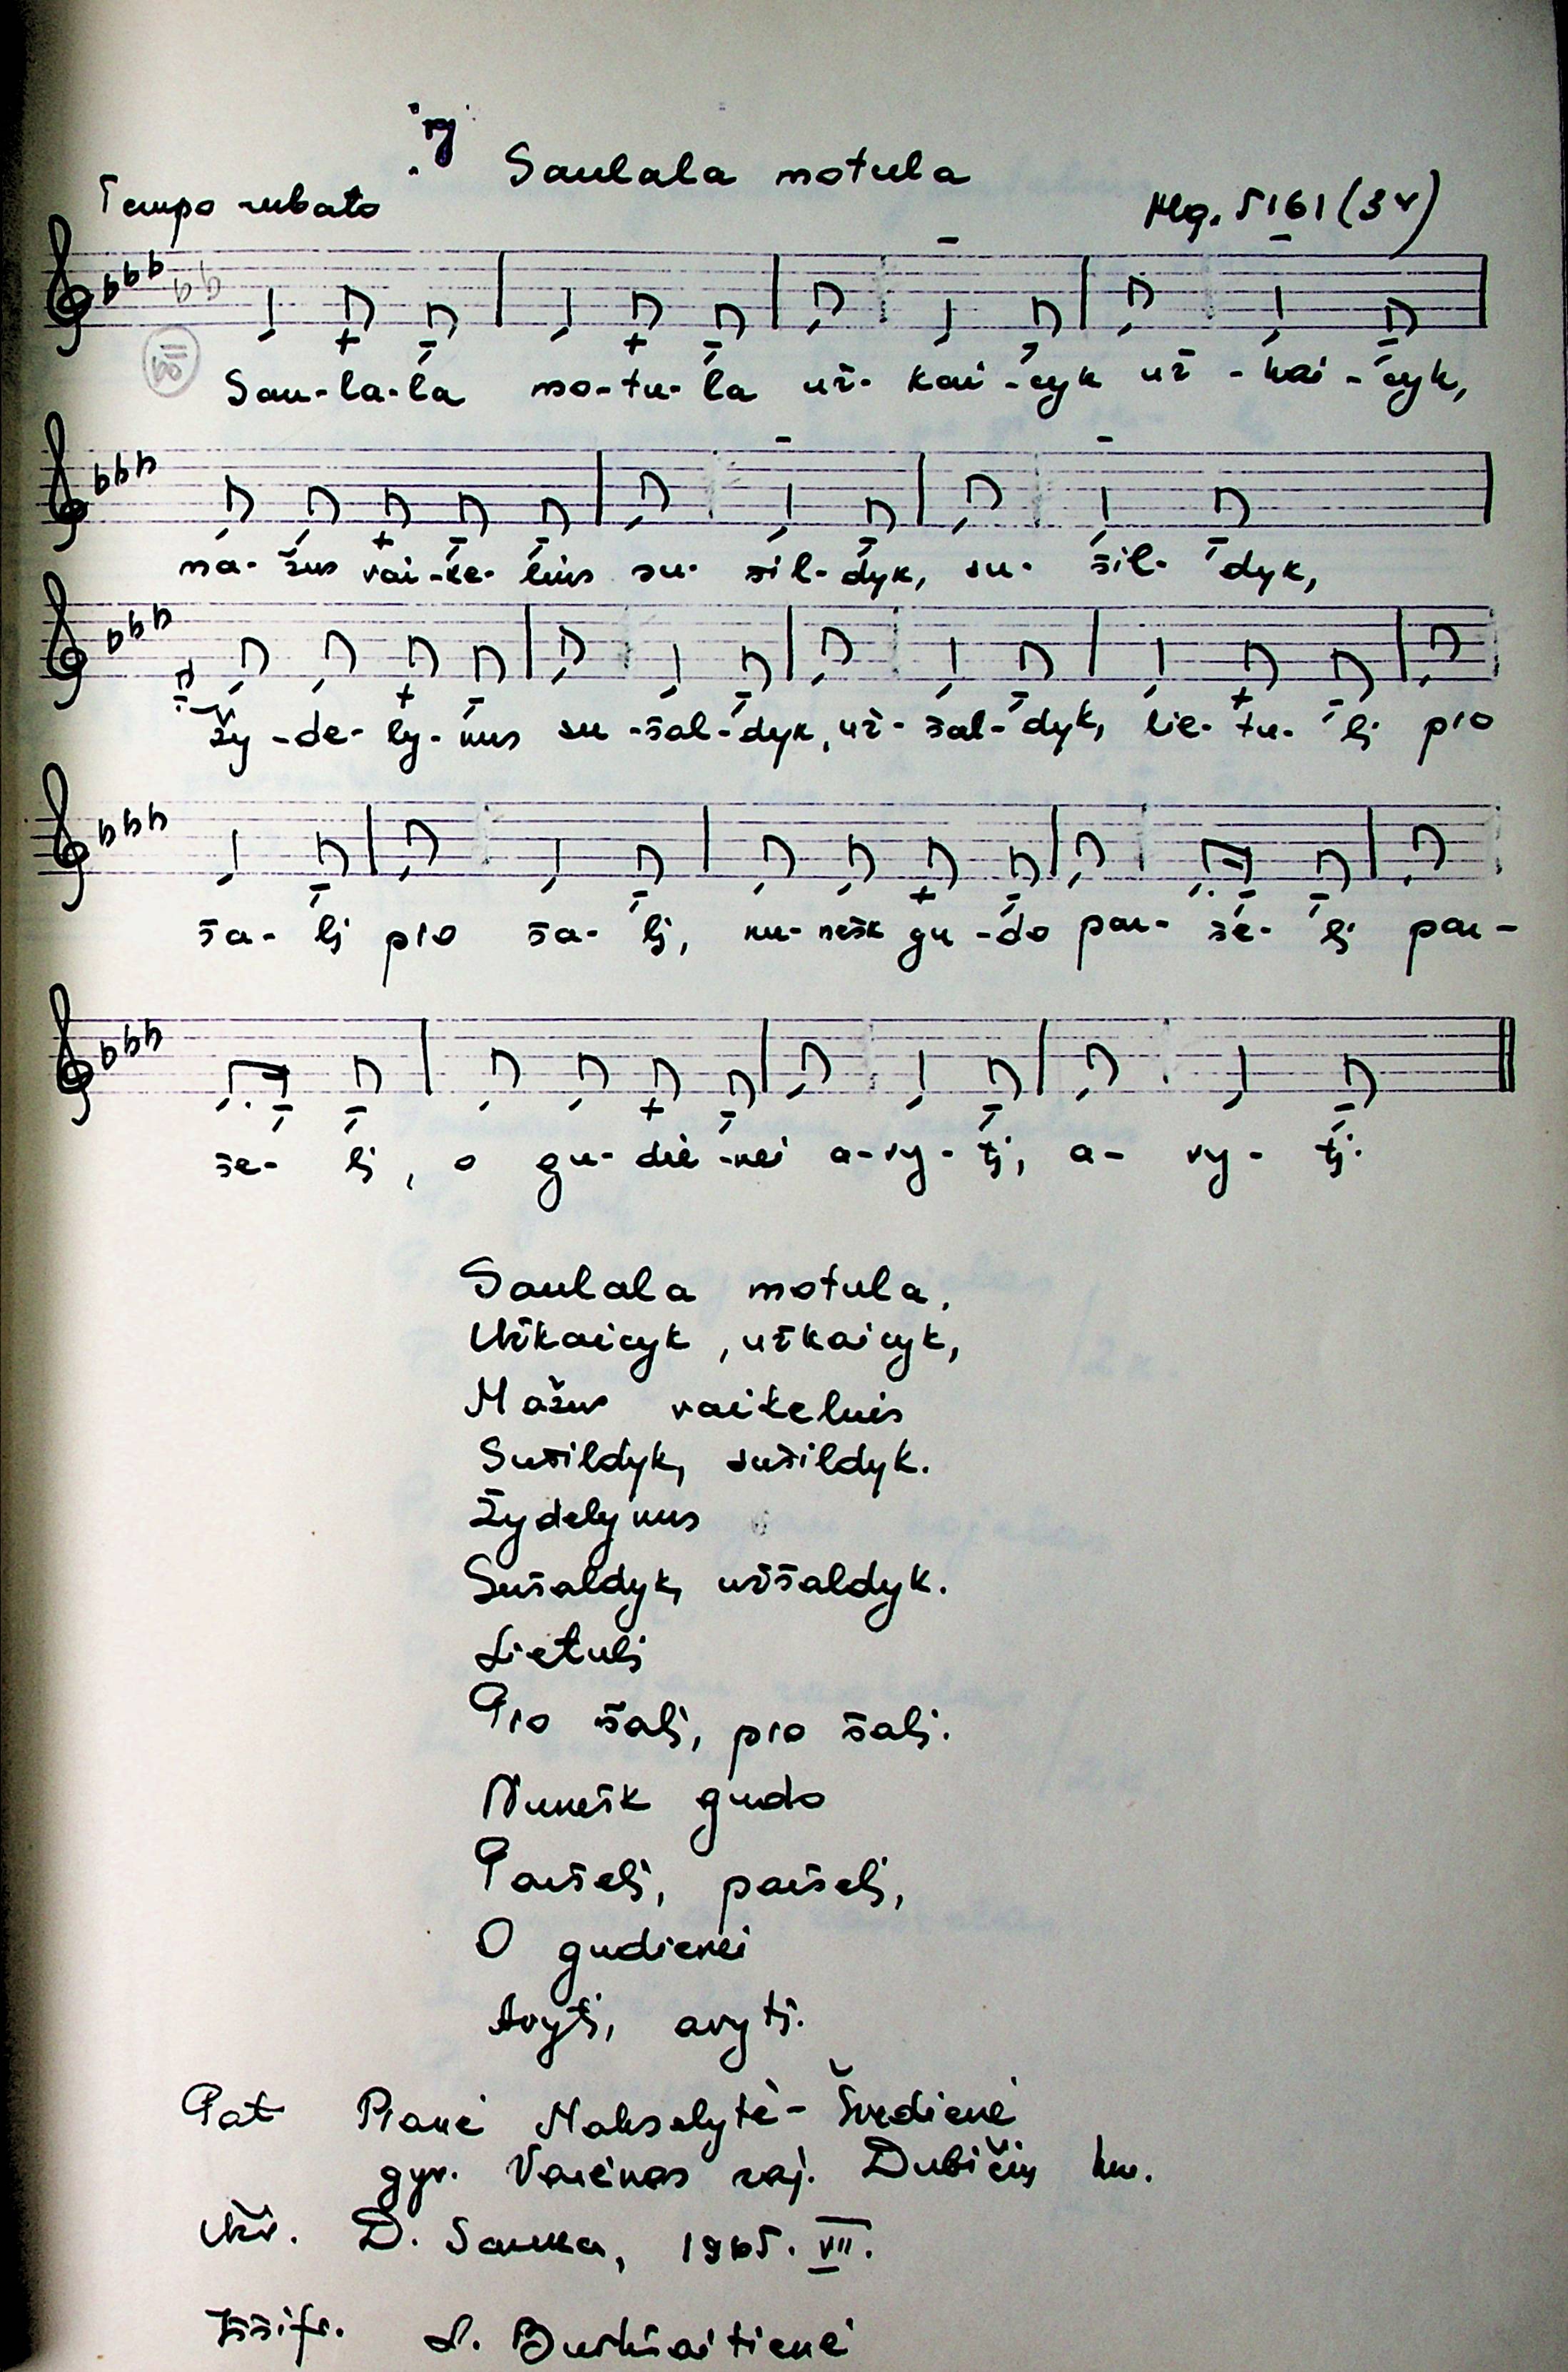 Saulala motula
Tempo rubato
Mg. 5161 (34)
Sau-la-la mo-tu-la už-kai-cyk už-kai-cyk,
ma-žus vai-ke-luis su-šil-dyk, su-šil-dyk,
žy-de-ly-nus su-šal-dyk, už-šal-dyk, lie-tu-lį pro
ša-lį pro ša-lį, nu-nešk gu-do par-še-lį par-
še-lį, o gu-die-nei a-vy-tį, a-vy-tį.
Saulala motula,
Užkaicyk, užkaicyk,
Mažus vaikeluis
Sušildyk, sušildyk.
Žydelynus
Sušaldyk, užšaldyk.
Lietulį
Pro šalį, pro šalį.
Nunešk gudo
Paršelį, paršelį,
O gudienei
Avytį, avytį.
Pat Pranė Švedienė
gyv. Varėnos raj. Dubičių km.
Užr. D. Sauka, 1965. VII.
Iššifr. L. Burkšaitienė